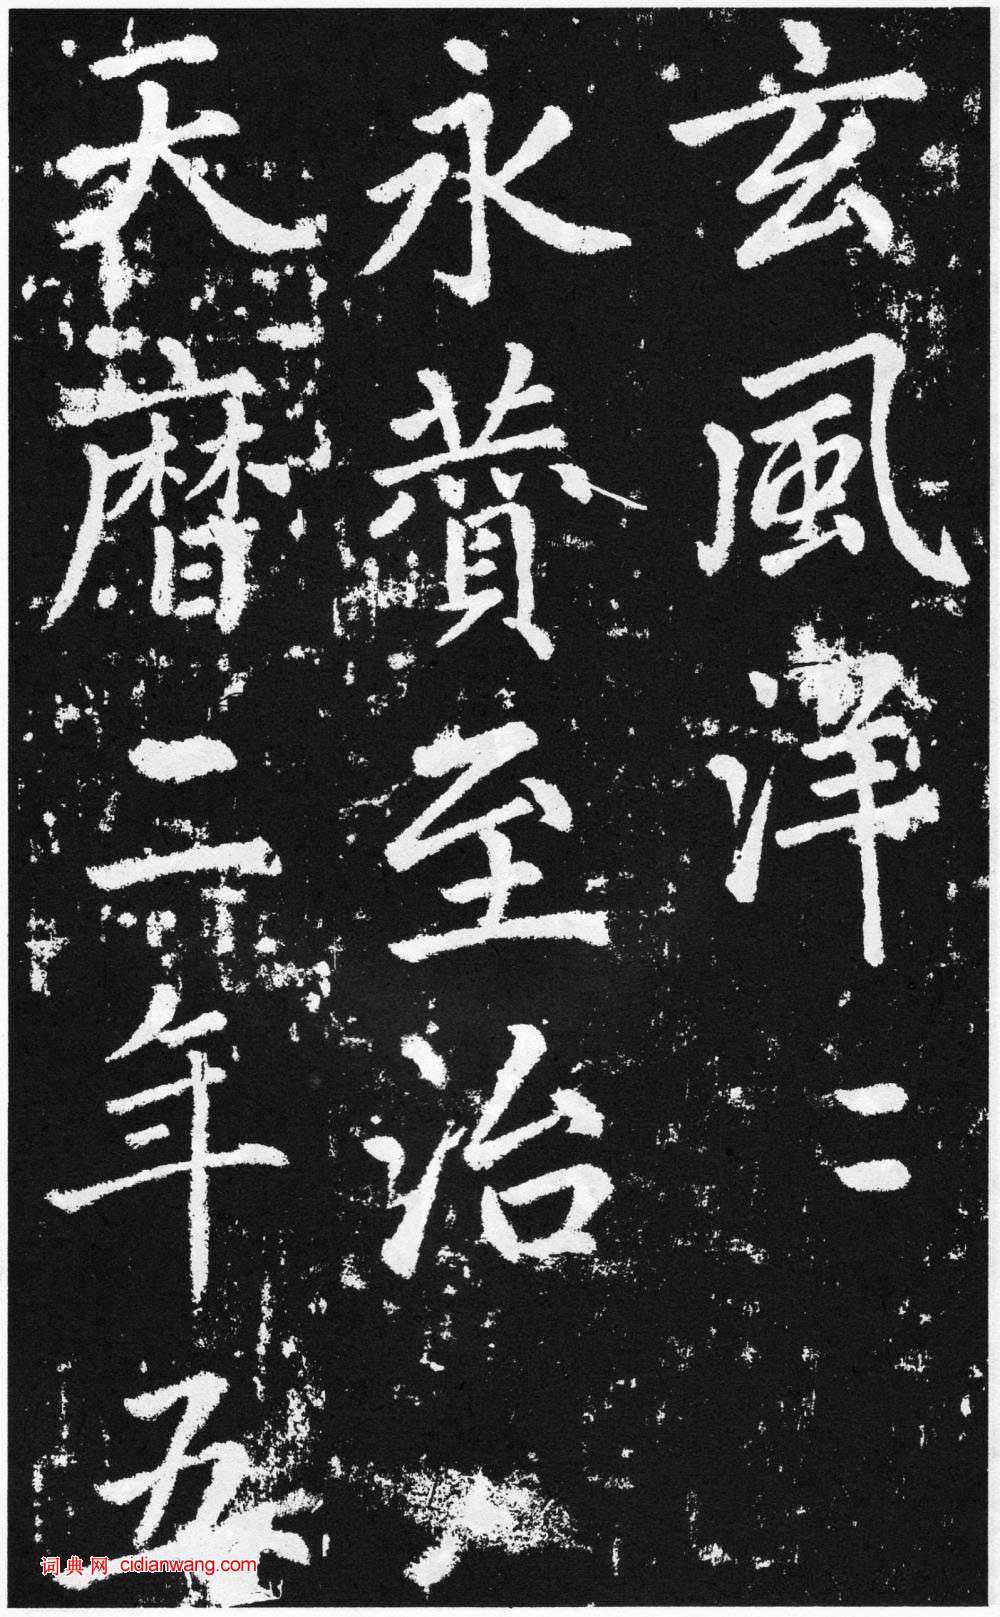 玄風洋〻
永贊至治
天曆二年五
词典网 cidianwang.com